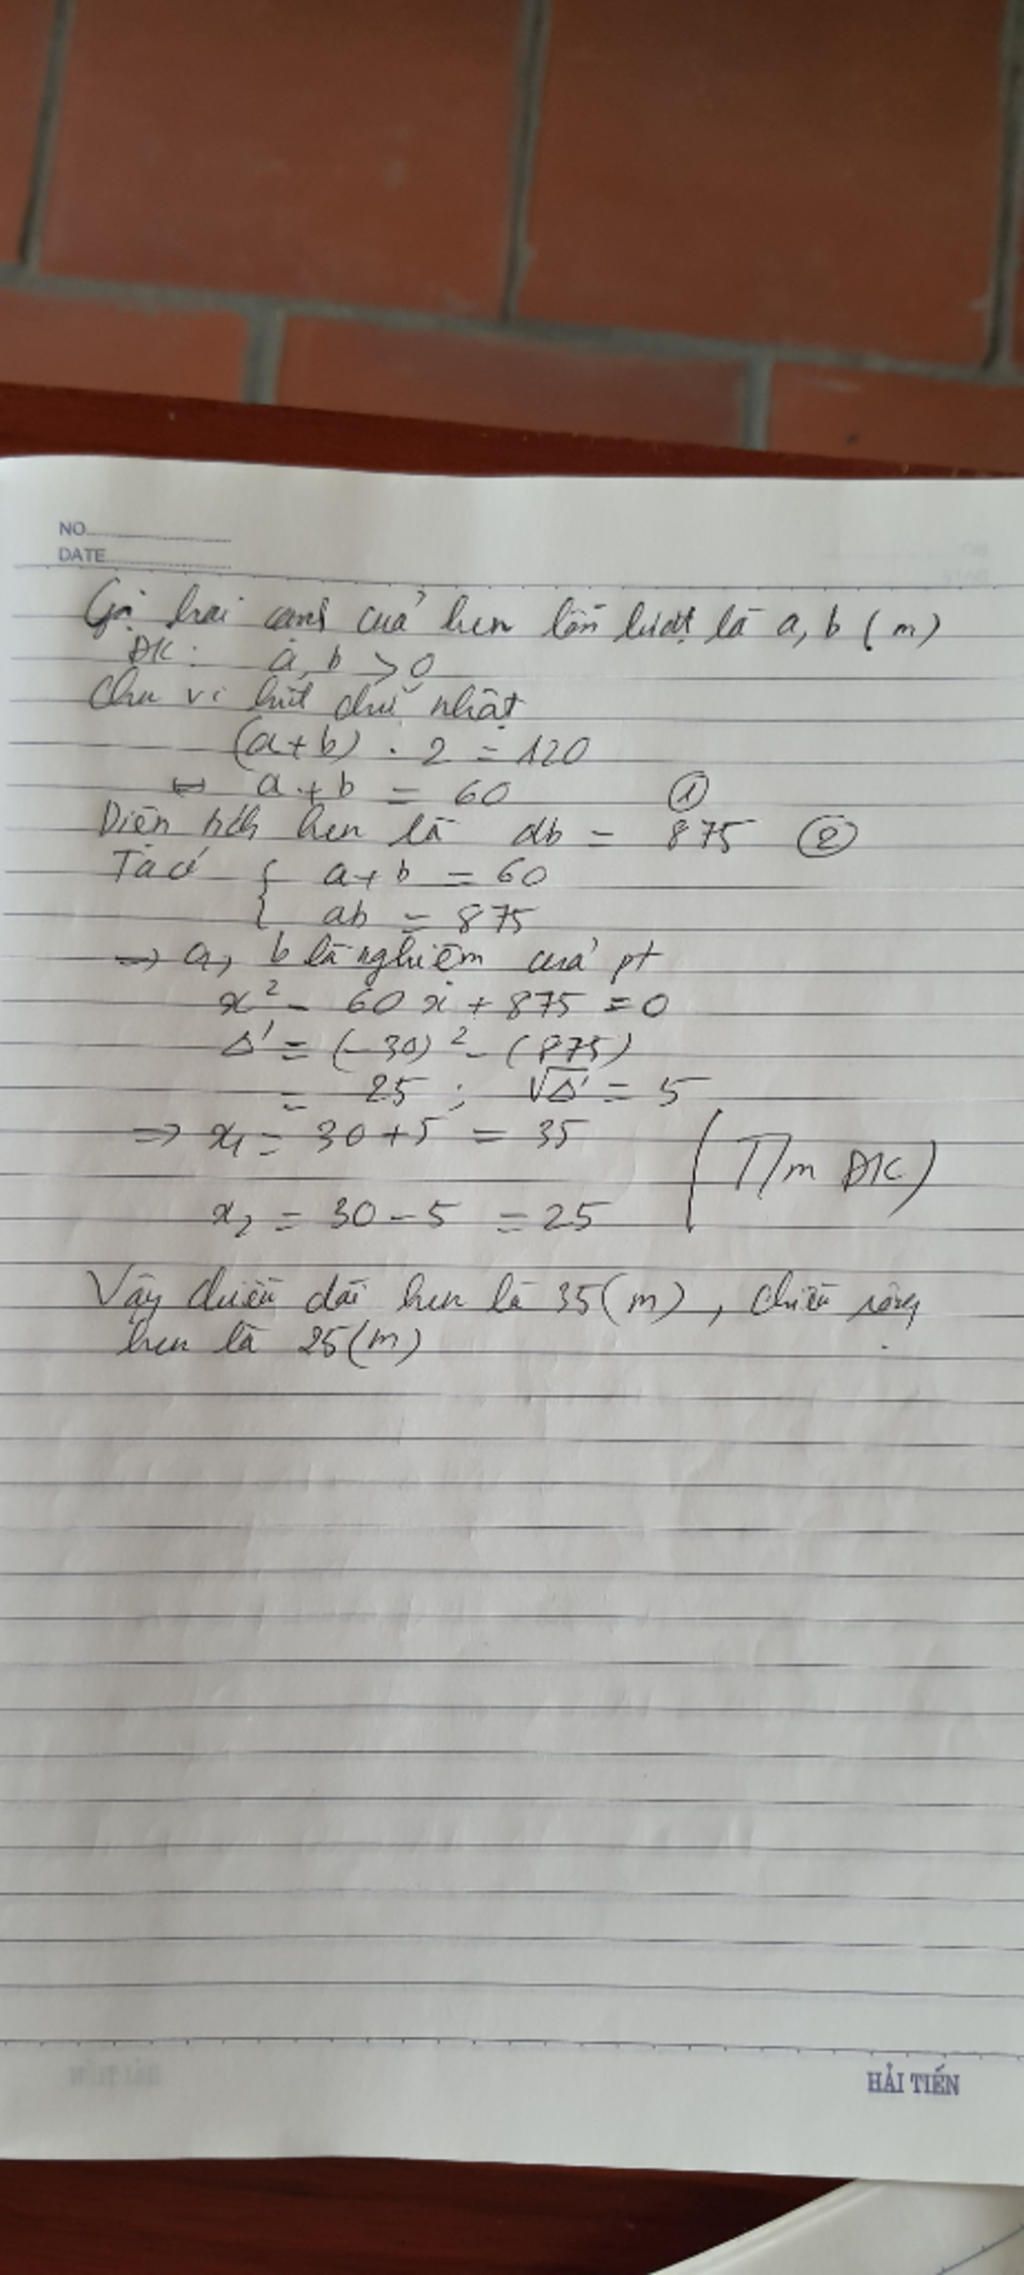 NO.
DATE
Gọi hai cạnh của hcn lần lượt là a, b (m)
ĐK: a, b > 0
Chu vi hình chữ nhật
(a+b) . 2 = 120
⇔ a + b = 60 ①
Diện tích hcn là ab = 875 ②
Ta có { a + b = 60
ab = 875
⇒ a, b là nghiệm của pt
x² - 60x + 875 = 0
Δ' = (-30)² - (875)
= 25 ; √Δ' = 5
⇒ x₁ = 30 + 5 = 35
(T/m ĐK)
x₂ = 30 - 5 = 25
Vậy chiều dài hcn là 35(m), chiều rộng
hcn là 25(m)
HẢI TIẾN